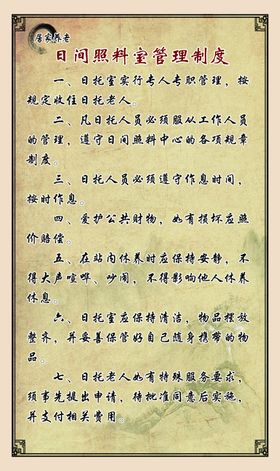 居家养老
日间照料室管理制度
一、日托室实行专人专职管理，按
规定收住日托老人。
二、凡日托人员必须服从工作人员
的管理，遵守日间照料中心的各项规章
制度。
三、日托人员必须遵守作息时间，
按时作息。
四、爱护公共财物，如有损坏应照
价赔偿。
五、在站内休养时应保持安静，不
得大声喧哗、吵闹，不得影响他人休养
休息。
六、日托室应保持清洁，物品摆放
整齐，并妥善保管好自己随身携带的物
品。
七、日托老人如有特殊服务要求，
须事先提出申请，待批准同意后实施，
并支付相关费用。